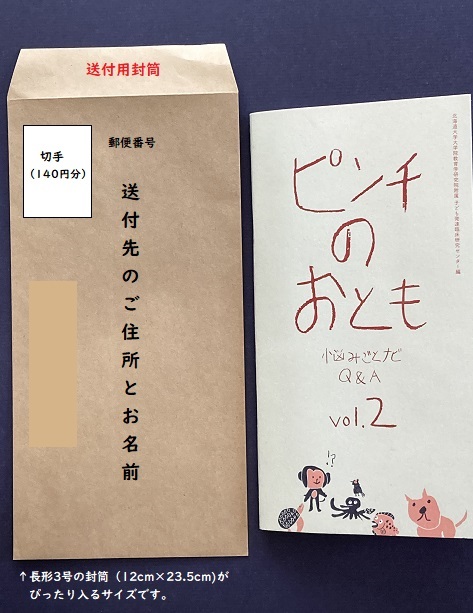 送付用封筒
切手
(140円分)
郵便番号
送付先のご住所とお名前
北海道大学大学院教育学研究院附属 子ども発達臨床研究センター編
ピンチ
の
おとも
悩みごとナビ
Q&A
vol.2
!?
↑長形3号の封筒(12cm×23.5cm)が
ぴったり入るサイズです。